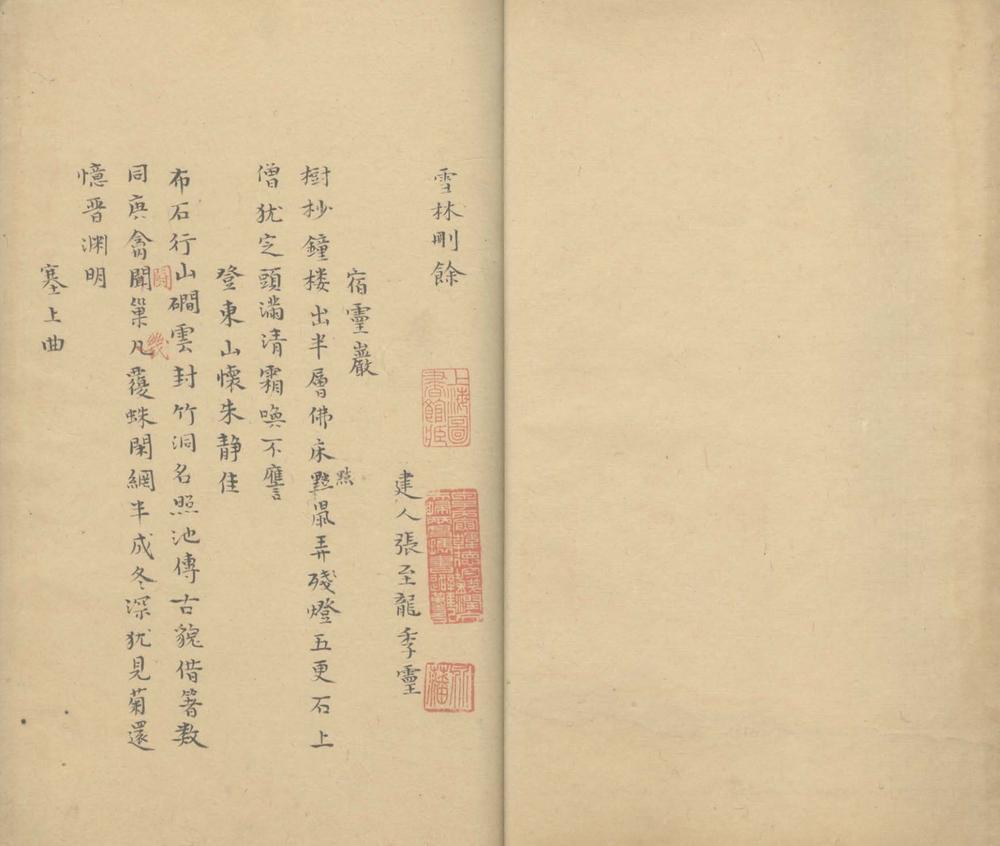 雪林刪餘
上海圖書館藏
建人張至龍季靈
宿靈巖
樹杪鐘楼出半層佛床黠鼠弄殘燈五更石上
僧犹定頭滿清霜喚不譍
登東山懷朱靜佳
布石行山磵雲封竹洞名照池傳古貌借箸数
同庚禽聞巢凡覆蛛閑網半成冬深犹見菊還
鬪
幾
憶晋淵明
塞上曲